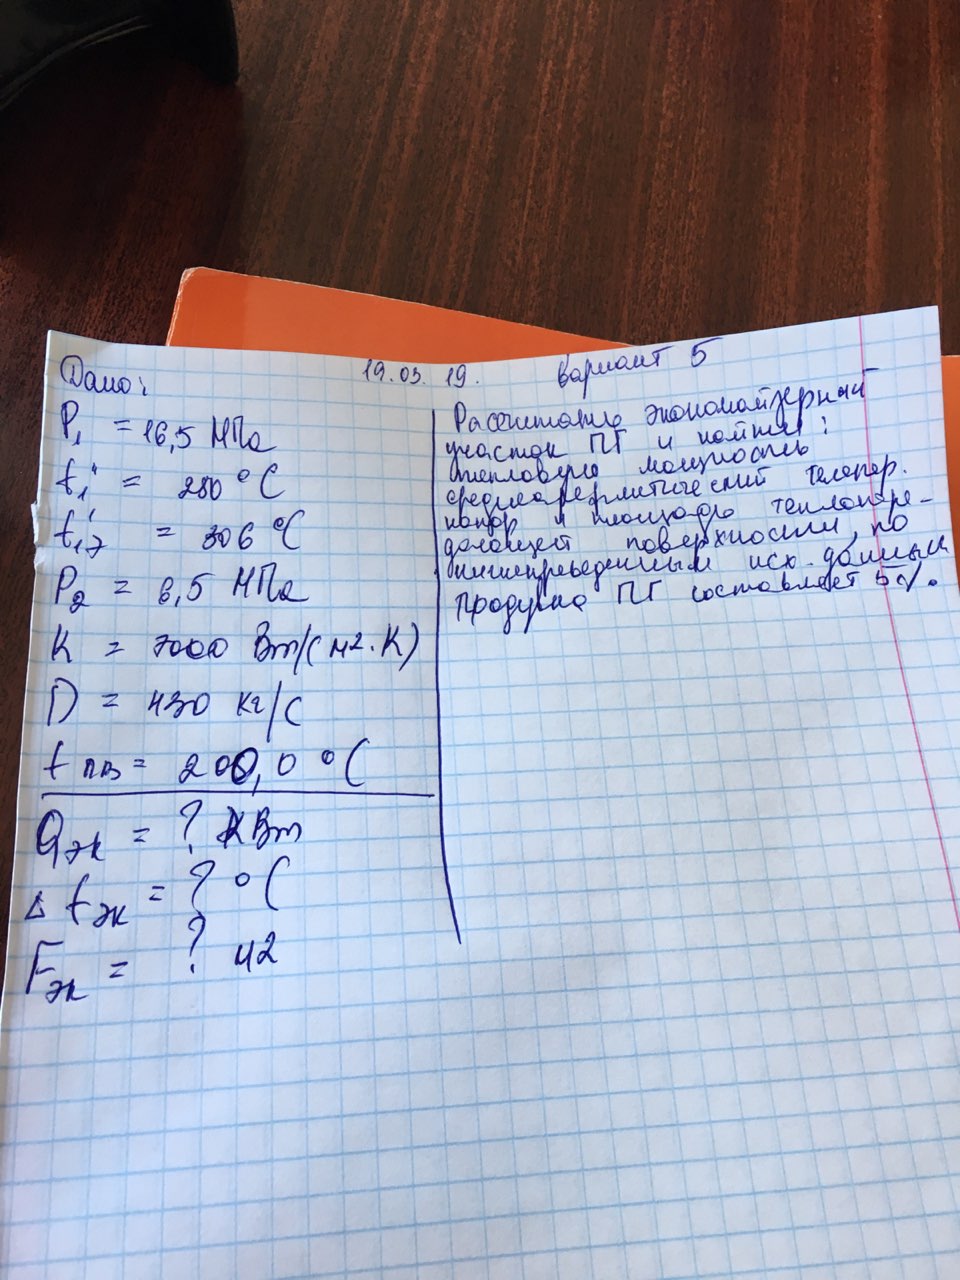 Дано:
19.03. 19.
вариант 5
P₁ = 16,5 МПа
t₁" = 280 °C
t₁э' = 306 °C
P₂ = 6,5 МПа
K = 7000 Вт/(м2·K)
D = 430 кг/с
t пв = 200,0 °C
Qэк = ? кВт
Δ tэк = ? °C
Fэк = ? м2
Рассчитать экономайзерный
участок ПГ и найти:
тепловую мощность
среднеарифметический темпер.
напор и площадь теплопере-
дающей поверхности, по
нижеприведенным исх. данным
Продувка ПГ составляет 5%.